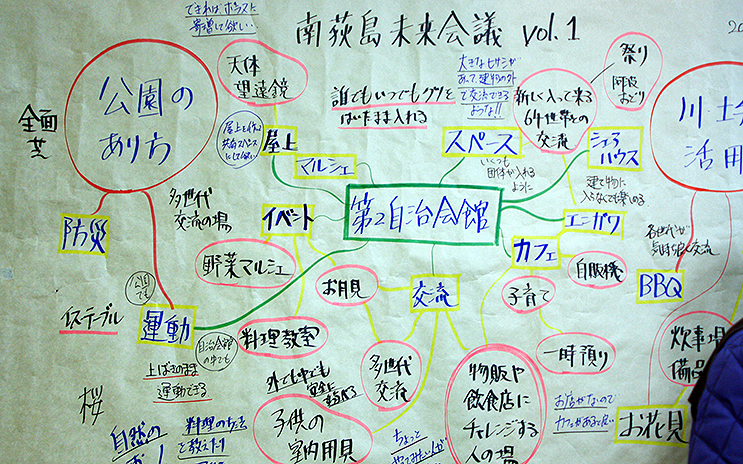 できればポラスに
寄贈して欲しい…
南荻島未来会議 vol.1
20
天体
望遠鏡
公園の
あり方
全面
芝
誰でもいつでもクツを
はいたまま入れる
大きなヒサシが
あって、建物の外
で交流できる
ような!!
新しく入って来る
64世帯との
交流
祭り
阿波
おどり
川土
活用
屋上を作り
共有スペース
にしてほしい
屋上
マルシェ
スペース
いくつも
団体が入れる
ように
シェア
ハウス
建て物に
入らなくても楽しめる
第2自治会館
エンガワ
カフェ
自販機
多世代
交流の場
防災
イベント
野菜マルシェ
お月見
交流
子育て
一時預り
各世代が
交流
BBQ
公園
でも
イステーブル
運動
自治会館
の中でも
料理教室
上ばきのまま
運動できる
外でも中でも
多世代
交流
物販や
飲食店に
チャレンジする
人の場
炊事場
備品
お店がないので
カフェがあると良い
お花見
桜
自然の
料理の方法
を教えたり
子供の
室内用具
ちょっと